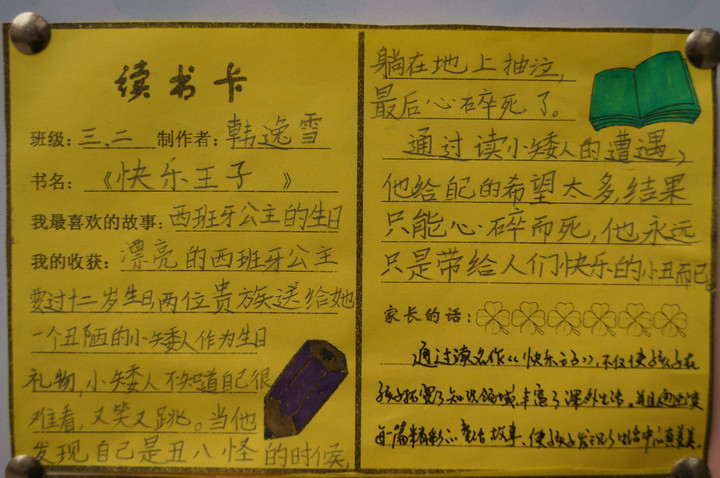 读书卡
班级：三、二 制作者：韩逸雪
书名：《快乐王子》
我最喜欢的故事：西班牙公主的生日
我的收获：漂亮的西班牙公主
要过十二岁生日，两位贵族送给她
一个丑陋的小矮人作为生日
礼物，小矮人不知道自己很
难看，又笑又跳。当他
发现自己是丑八怪的时候，
躺在地上抽泣，
最后心碎死了。
通过读小矮人的遭遇，
他给自己的希望太多，结果
只能心碎而死，他永远
只是带给人们快乐的小丑而已。
家长的话：
通过读名作《快乐王子》，不仅使孩子在
孩子拓宽了知识领域，丰富了课外生活。并且通过读
每篇精彩的童话故事、使孩子发现了生活中的真善美。